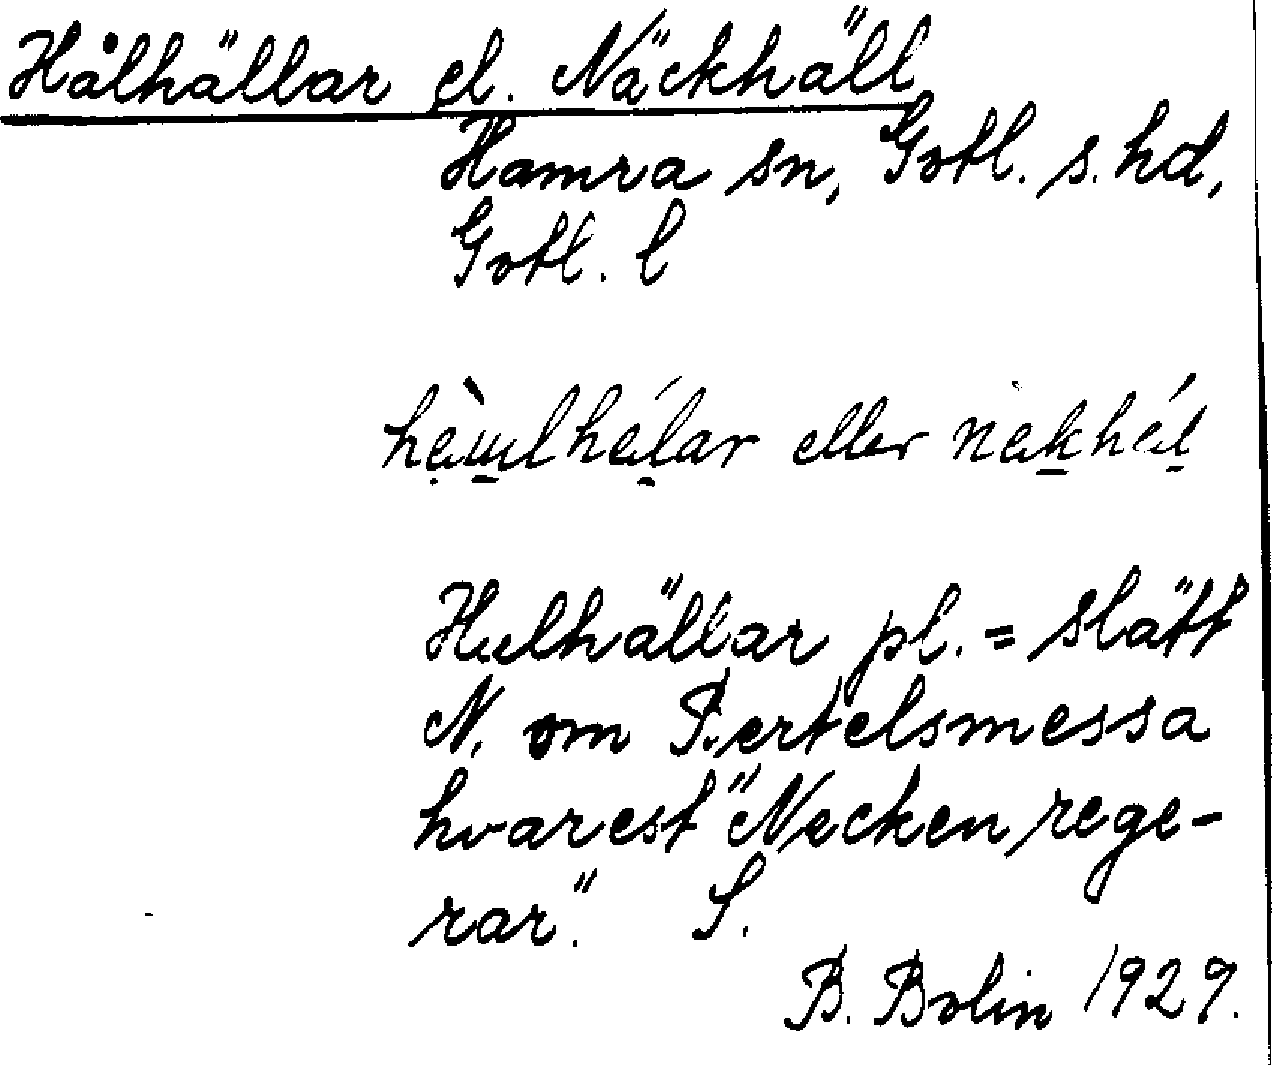 Hålhällar el. Näckhäll
Hamra sn, Gotl. s. hd,
Gotl. l
eller
Hulhällar pl. = slätt
N. om Bertelsmessa
hvarest "Necken rege-
rar". S.
B. Bolin 1929.